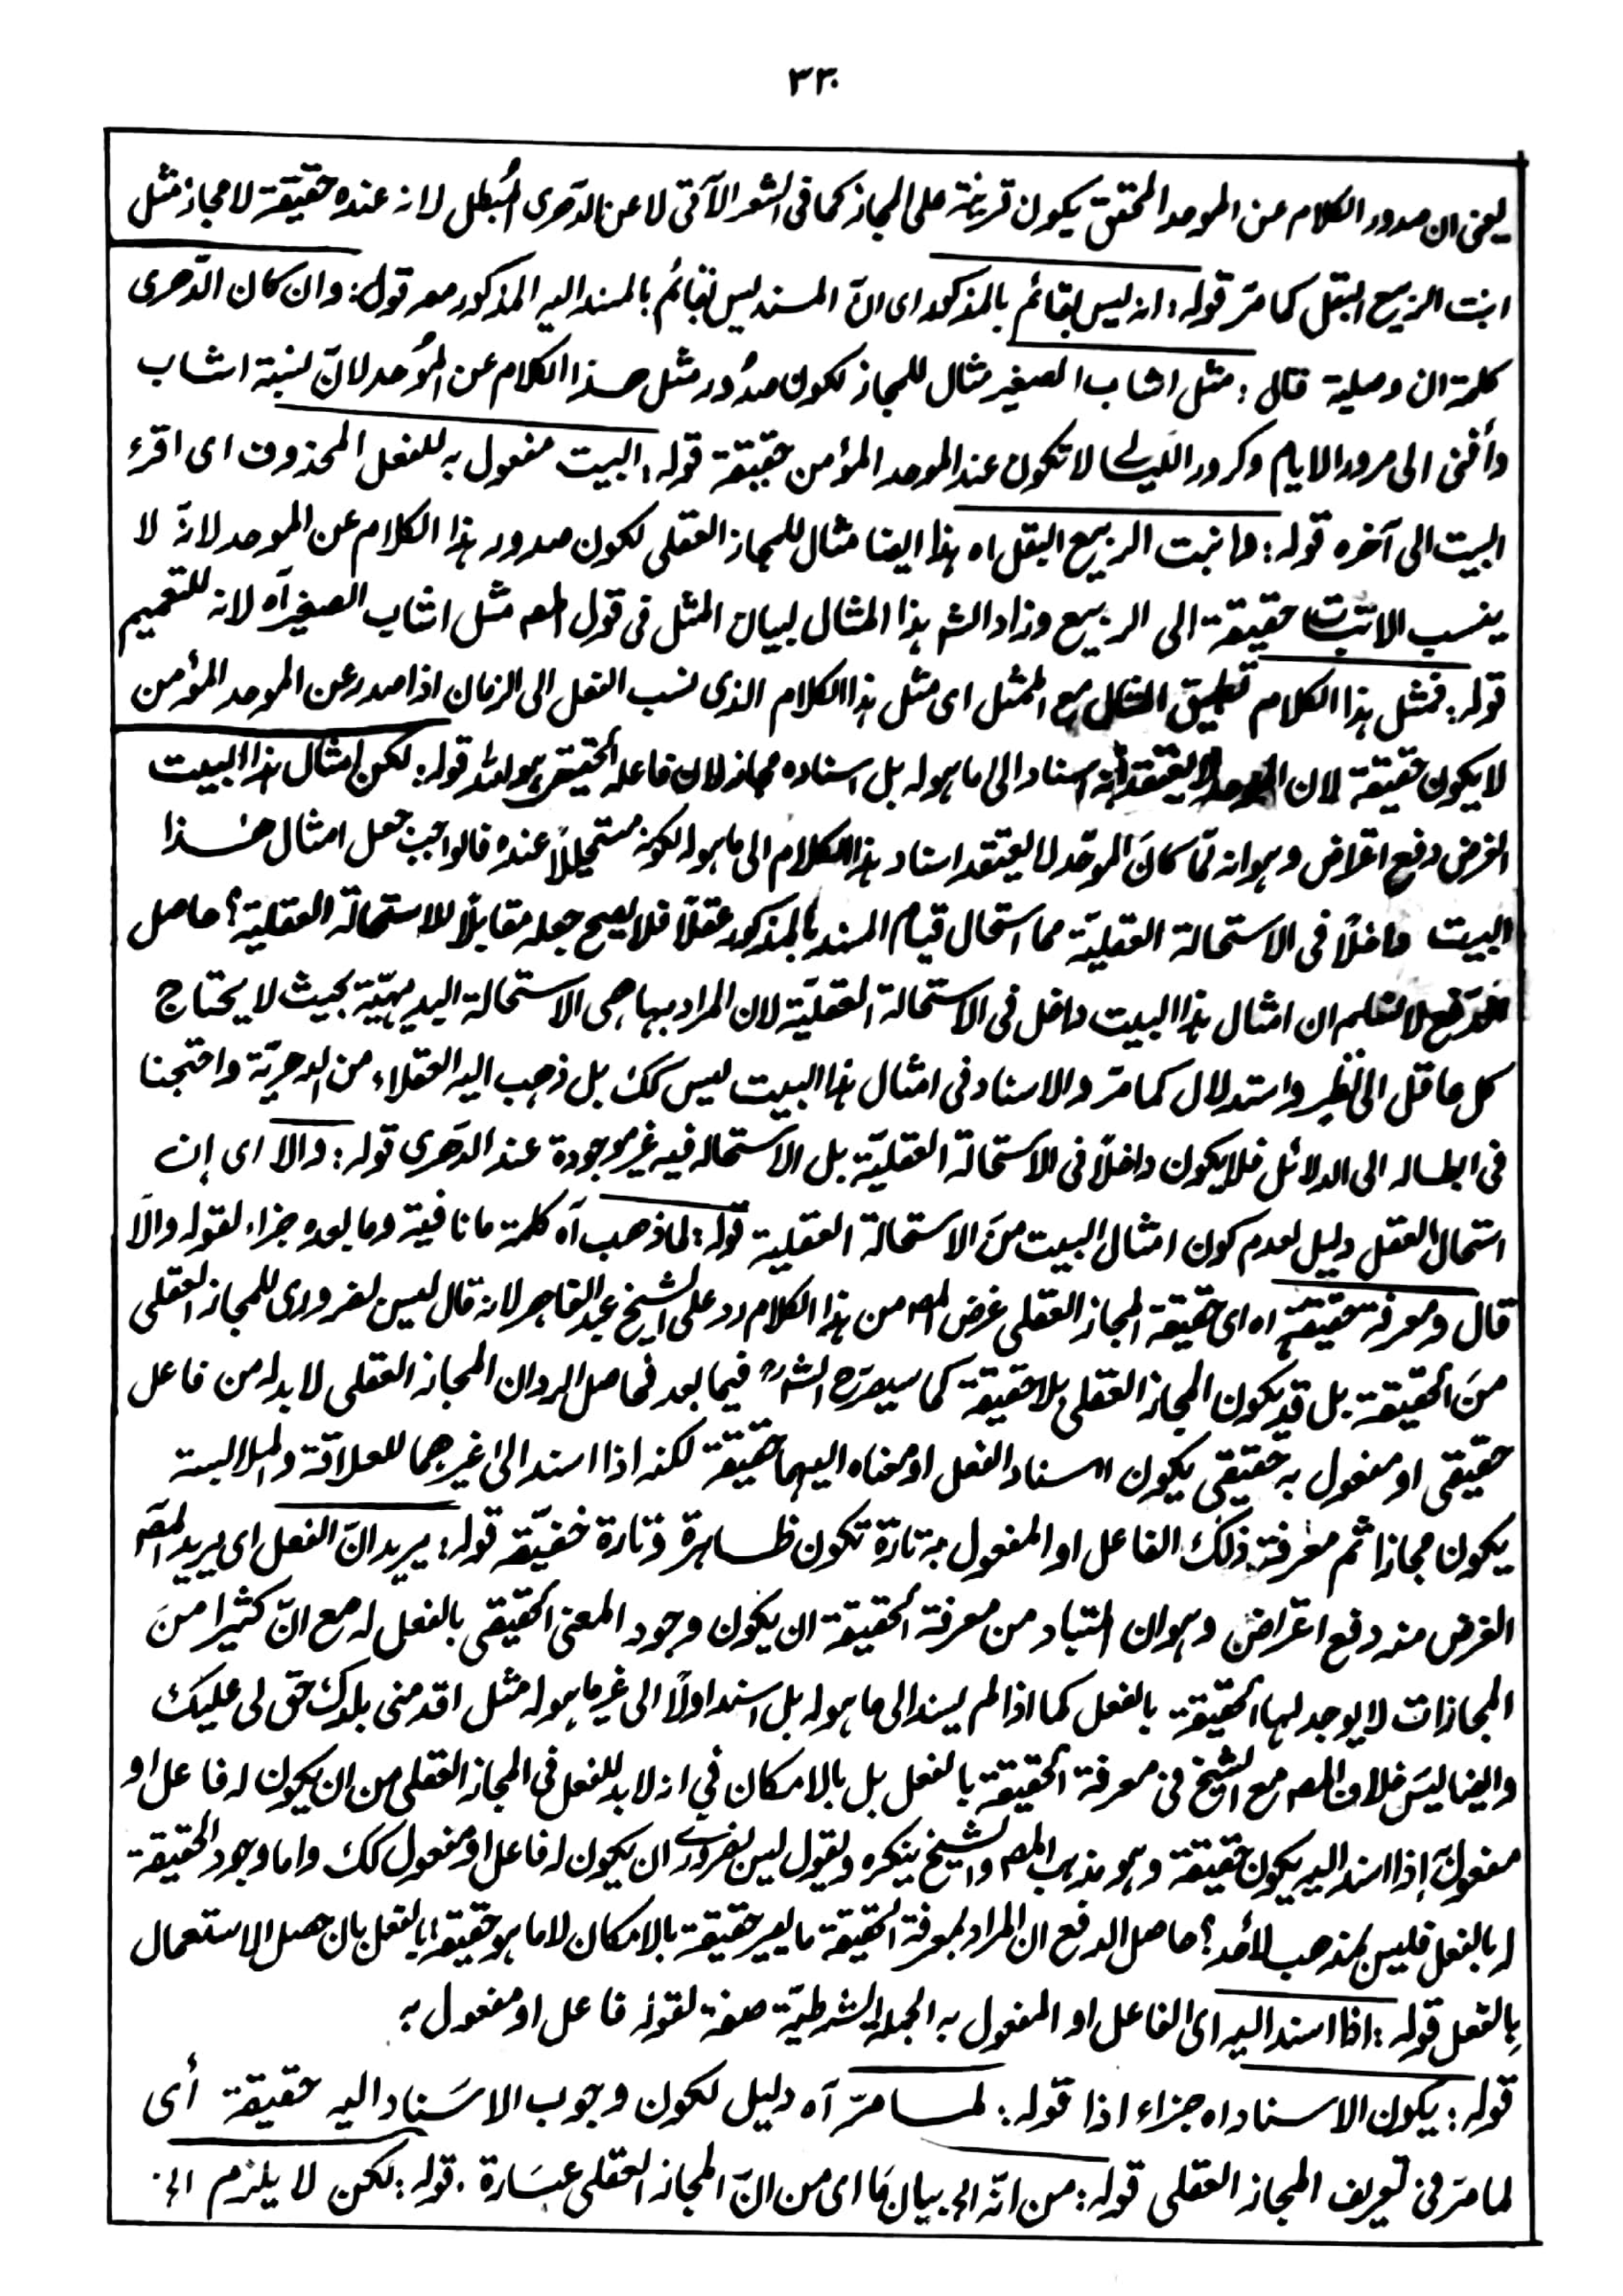 ٣٣٠
يعنى ان صدور الكلام عن الموحد المحقق يكون قرينة على المجاز كما فى الشعر الآتى لا عن الدّهرى المُبطل لانه عنده حقيقة لا مجاز مثل
انبت الربيع البقل كما مرّ قوله: انه ليس بقائم بالمذكور اى انّ المسند ليس بقائم بالمسند اليه المذكور معه قوله: وان كان الدّهرى
كلمة ان وصلية قال: مثل اشاب الصغير مثال للمجاز لكون صدُور مثل هذا الكلام عن المُوحد لانّ نسبة اشاب
وأفنى الى مرور الايام وكرور الليالى لا تكون عند الموحد المؤمن حقيقة قوله: البيت مفعول به للفعل المحذوف اى اقرء
البيت الى آخره قوله: وانبت الربيع البقل اه هذا ايضا مثال للمجاز العقلى لكون صدور هذا الكلام عن الموحد لانّه لا
ينسب الانبات حقيقة الى الربيع وزاد الشه هذا المثال لبيان المثل فى قول المصه مثل اشاب الصغير آه لانه للتعميم
قوله: فمثل هذا الكلام تطبيق المثال مع الممثل اى مثل هذا الكلام الذى نسب الفعل الى الزمان اذا صدر عن الموحد المؤمن
لا يكون حقيقة لان الموحد لا يعتقد انه اسناد الى ما هوله بل اسناده مجاز لان فاعله الحقيقى هو الله قوله: لكن امثال هذا البيت
الغرض دفع اعتراض وهو انه لمّا كان الموحّد لا يعتقد اسناد هذا الكلام الى ما هو له لكونه مستحيلاً عنده فالواجب جعل امثال هٰذا
البيت داخلاً فى الاستحالة العقليّة مما استحال قيام المسند بالمذكور عقلاً فلا يصح جعله مقابلاً للاستحالة العقلية؟ حاصل
الدفع لا نسلم ان امثال هذا البيت داخل فى الاستحالة العقليّة لان المراد بها هى الاستحالة البديهيّة بحيث لا يحتاج
كل عاقل الى نظر واستدلال كما مرّ والاسناد فى امثال هذا البيت ليس كك بل ذهب اليه العقلاء من الدهريّة واحتجنا
فى ابطاله الى الدلائل فلا يكون داخلاً فى الاستحالة العقليّة بل الاستحاله فيه غير موجودة عند الدّهرى قوله: والا اى إن
استحال العقل دليل لعدم كون امثال البيت منَ الاستحالة العقلية قوله: لما ذهب آه كلمة ما نافية وما بعده جزاء لقوله والّا
قال ومعرفة حقيقته اه اى حقيقة المجاز العقلى غرض المصه من هذا الكلام رد على الشيخ عبد القاهر لانه قال ليس بضرورى للمجاز العقلى
منَ الحقيقة بل قد يكون المجاز العقلى بلا حقيقة كما سيصرّح الشه فيما بعد فحاصل الرد ان المجاز العقلى لا بد له من فاعل
حقيقى او مفعول به حقيقى يكون اسناد الفعل او معناه اليهما حقيقة لكنه اذا اسند الى غيرهما للعلاقة والملابسة
يكون مجازا ثم معرفة ذلك الفاعل او المفعول به تارة تكون ظاهرة وتارة خفيّة قوله: يريد انّ الفعل اى يريد المصه
الغرض منه دفع اعتراض وهو ان المتبادر من معرفة الحقيقة ان يكون وجود المعنى الحقيقى بالفعل له مع انّ كثيرا منَ
المجازات لا يوجد لها الحقيقة بالفعل كما اذا لم يسند الى ما هو له بل اسند اولاً الى غير ما هو له مثل اقدمنى بلدك حق لى عليك
وايضا ليسَ خلاف المصه مع الشيخ فى معرفة الحقيقة بالفعل بل بالامكان فى انه لا بد للفعل فى المجاز العقلى من ان يكون له فاعل او
مفعول اذا اسند اليه يكون حقيقة وهو مذهب المصه والشيخ ينكره ويقول ليس بضرورى ان يكون له فاعل او مفعول كك واما وجود الحقيقة
له بالفعل فليس بمذهب لأحد؟ حاصل الدفع ان المراد بمعرفة الحقيقة ما يصير حقيقة بالامكان لا ما هو حقيقة بالفعل بان حصل الاستعمال
بِالفعل قوله: اذا اسند اليه اى الفاعل او المفعول به الجملة الشرطيّة صفة لقوله فاعل او مفعول به
قوله: يكون الاسناد اه جزاء اذا قوله: لما مرّ آه دليل لكون وجوب الاسَناد اليه حقيقة أى
لما مرّ فى تعريف المجاز العقلى قوله: من انّه الى بيان مَا اى من انّ المجاز العقلى عبَارة. قوله: لكن لا يلزم الخ